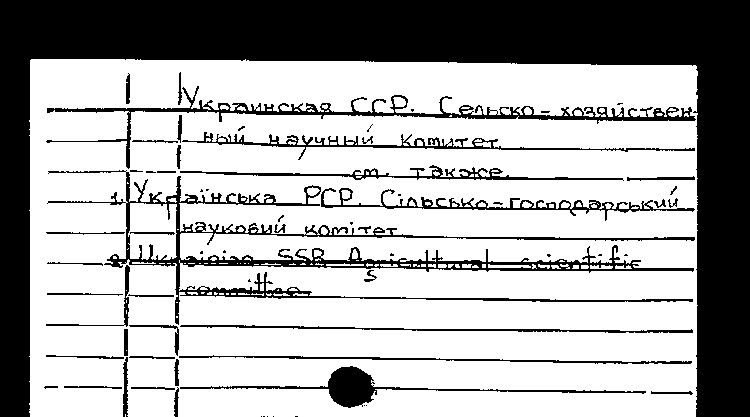 Украинская ССР. Сельско-хозяйствен-
ный научный комитет.
см. также.
1. Українська РСР. Сільсько-господарський
науковий комітет.
2. Ukrainian SSR Agricultural scientific
committee.